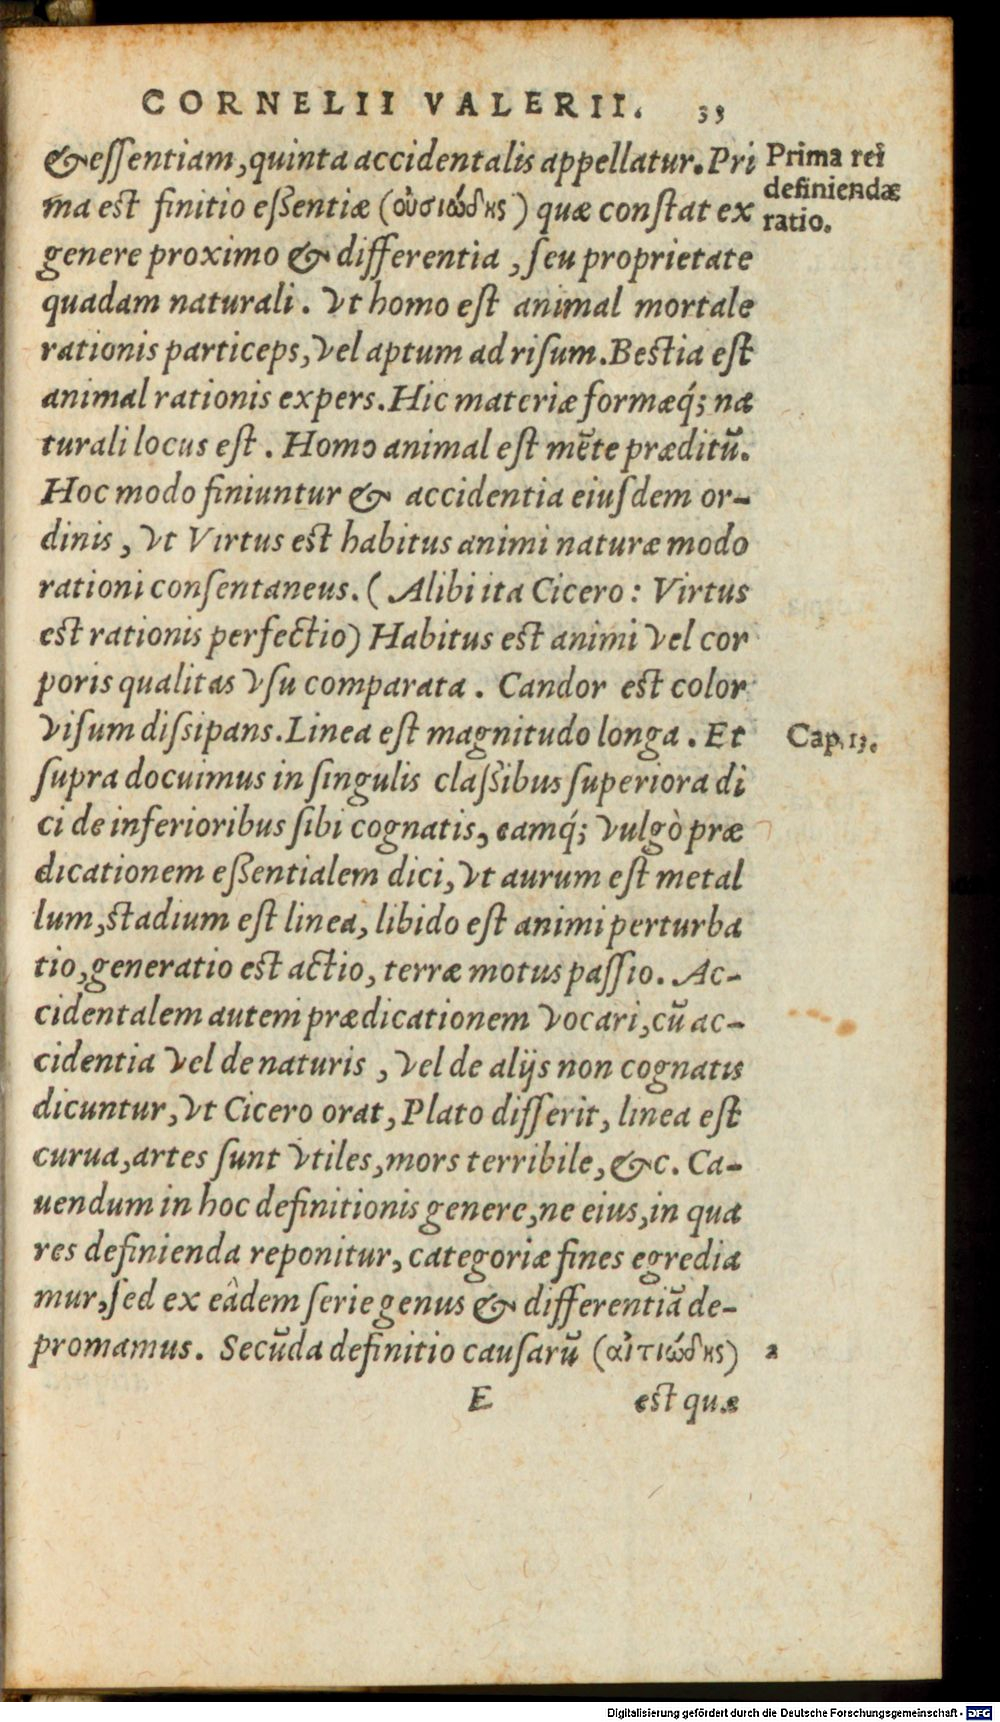 CORNELII VALERII. 33
& essentiam, quinta accidentalis appellatur. Pri
ma est finitio essentiæ (οὐσιώδης) quæ constat ex
genere proximo & differentia, seu proprietate
quadam naturali. Vt homo est animal mortale
rationis particeps, vel aptum ad risum. Bestia est
animal rationis expers. Hic materiæ formæq́; na
turali locus est. Homo animal est mẽte præditũ.
Hoc modo finiuntur & accidentia eiusdem or-
dinis, vt Virtus est habitus animi naturæ modo
rationi consentaneus. (Alibi ita Cicero: Virtus
est rationis perfectio) Habitus est animi vel cor
poris qualitas vsu comparata. Candor est color
visum dissipans. Linea est magnitudo longa. Et
supra docuimus in singulis classibus superiora di
ci de inferioribus sibi cognatis, eamq́; vulgò præ
dicationem essentialem dici, vt aurum est metal
lum, stadium est linea, libido est animi perturba
tio, generatio est actio, terræ motus passio. Ac-
cidentalem autem prædicationem vocari, cũ ac-
cidentia vel de naturis, vel de alijs non cognatis
dicuntur, vt Cicero orat, Plato disserit, linea est
curua, artes sunt vtiles, mors terribile, &c. Ca-
uendum in hoc definitionis genere, ne eius, in qua
res definienda reponitur, categoriæ fines egredia
mur, sed ex eâdem serie genus & differentiã de-
promamus. Secũda definitio causarũ (αἰτιώδης)
E est quæ
Prima rei
definiendæ
ratio.
Cap. 13.
2
Digitalisierung gefördert durch die Deutsche Forschungsgemeinschaft - DFG